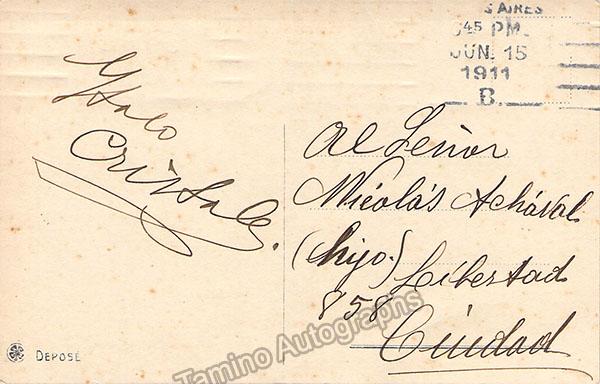 S AIRES
45 PM.
JUN. 15
1911
B.
Italo
Cristalli.
Al Señor
Nicolás Achával
(hijo.) Libertad
858
Ciudad
DEPOSÉ
Tamino Autographs